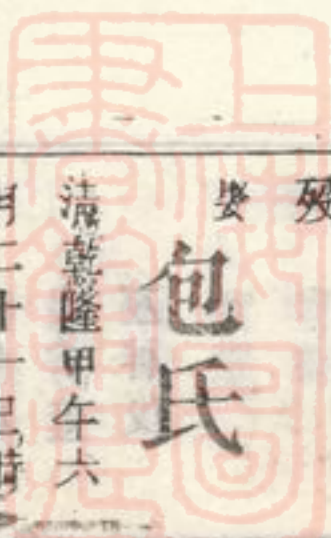 歿
娶
包氏
清乾隆甲午六
月二十一巳時